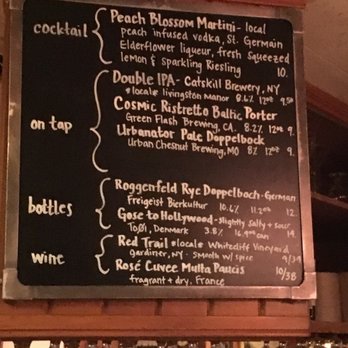 cocktail
Peach Blossom Martini - local
peach infused vodka, St. Germain
Elderflower liqueur, fresh squeezed
lemon & sparkling Riesling 10.
on tap
Double IPA - Catskill Brewery, NY
*locale livingston Manor 8.6% 12oz 9.50
Cosmic Ristretto Baltic Porter
Green Flash Brewing, CA. 8.2% 12oz 9.
Urbanator Pale Doppelbock
Urban Chesnut Brewing, MO 8% 12oz 9.
bottles
Roggenfeld Rye Doppelboch - German
Freigeist Bierkultur 10.6% 11.2oz 12.
Gose to Hollywood - slightly salty + sour
Denmark 3.8% 16.9oz can 14.
wine
Red Trail *locale Whitecliff Vineyard
Gardiner, NY - smooth w/ spice 9/34
Rosé Cuvee Multa Paucis 10/38
fragrant + dry. France